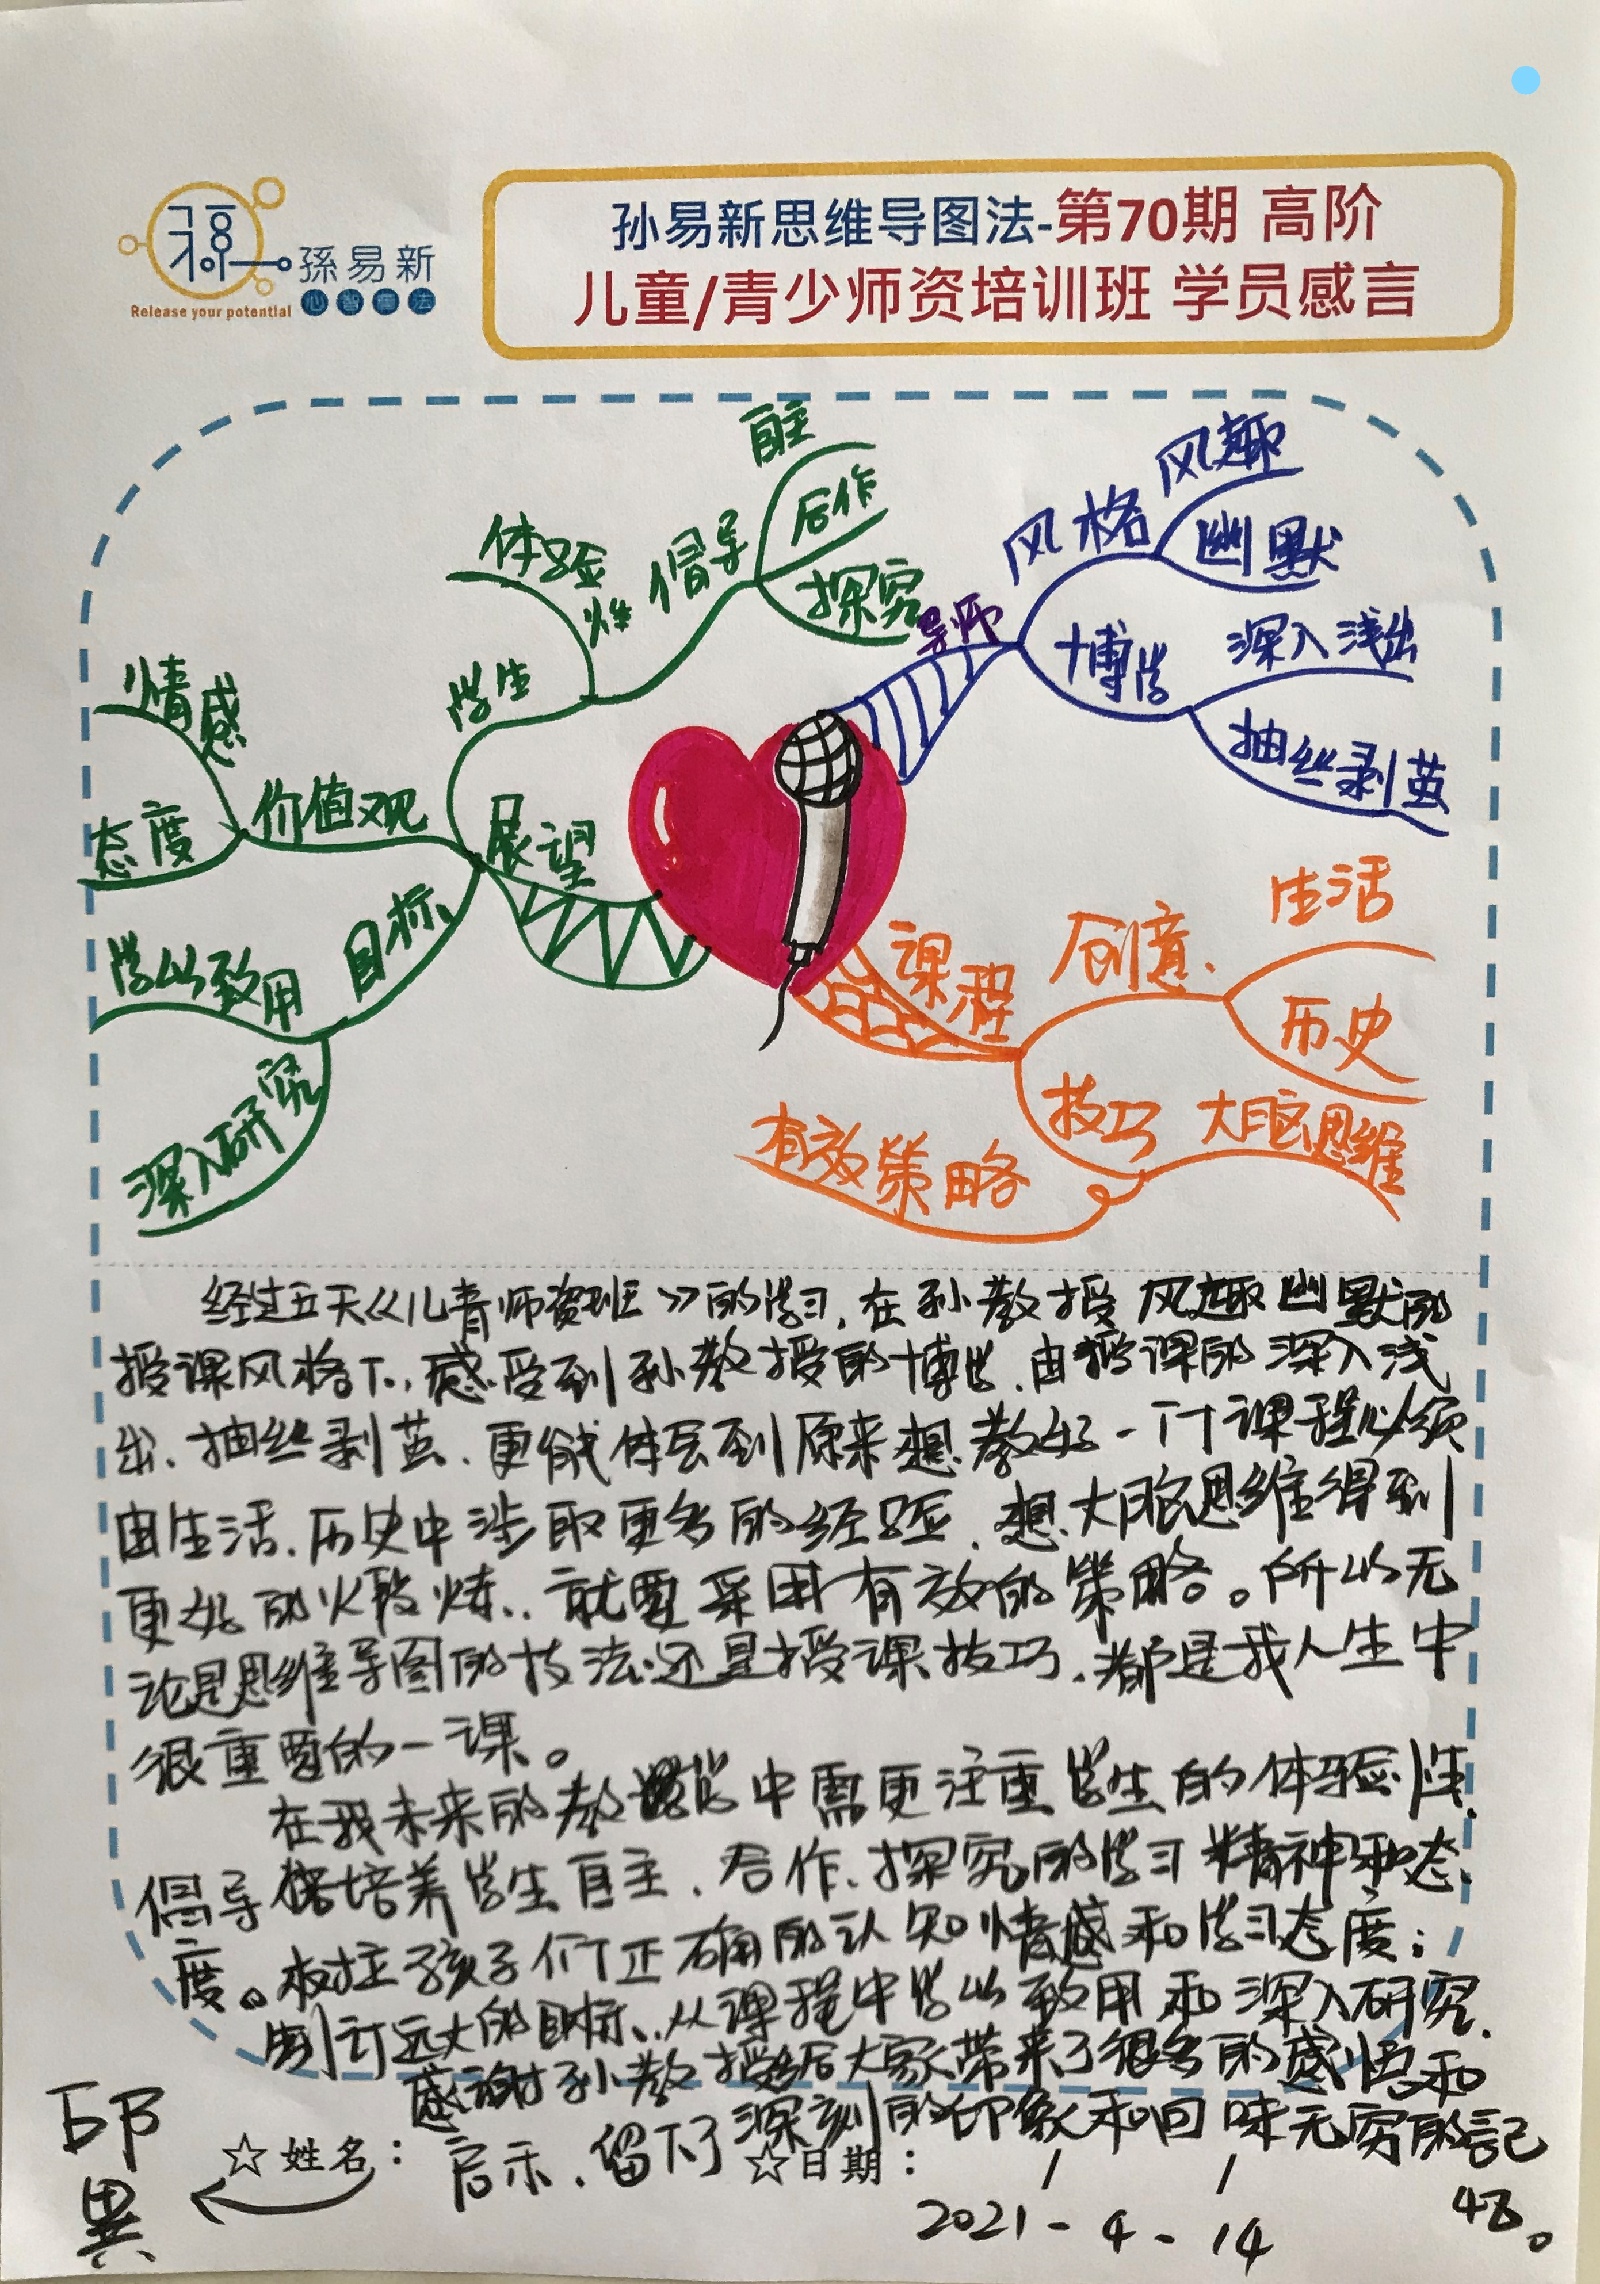 孙易新思维导图法-第70期 高阶
儿童/青少师资培训班 学员感言
孫易新
心智圖法
Release your potential
自主
合作
探究
倡导
体验
性
学生
情感
态度
价值观
展望
学以致用
目标
深入研究
导师
风格
风趣
幽默
博学
深入浅出
抽丝剥茧
课程
创意
生活
历史
技巧
大脑思维
有效策略
经过五天《儿青师资班》的学习,在孙教授风趣幽默的
授课风格下,感受到孙教授的博学,由授课的深入浅
出、抽丝剥茧,更能体会到原来想教好一门课程必须
由生活、历史中涉取更多的经验,想大脑思维得到
更好的火段炼,就要采用有效的策略。所以无
论是思维导图的技法还是授课技巧,都是我人生中
很重要的一课。
在我未来的教学中需更注重学生的体验性,
倡导培养学生自主、合作、探究的学习精神和态
度。树拄孩子们正确的认知情感和学习态度;
制订远大的目标,从课程中学以致用和深入研究.
感谢孙教授给大家带来了很多的感悟和
启示,留下了深刻的印象和回味无穷的記
忆。
☆姓名:
邱
異
☆日期: / /
2021-4-14